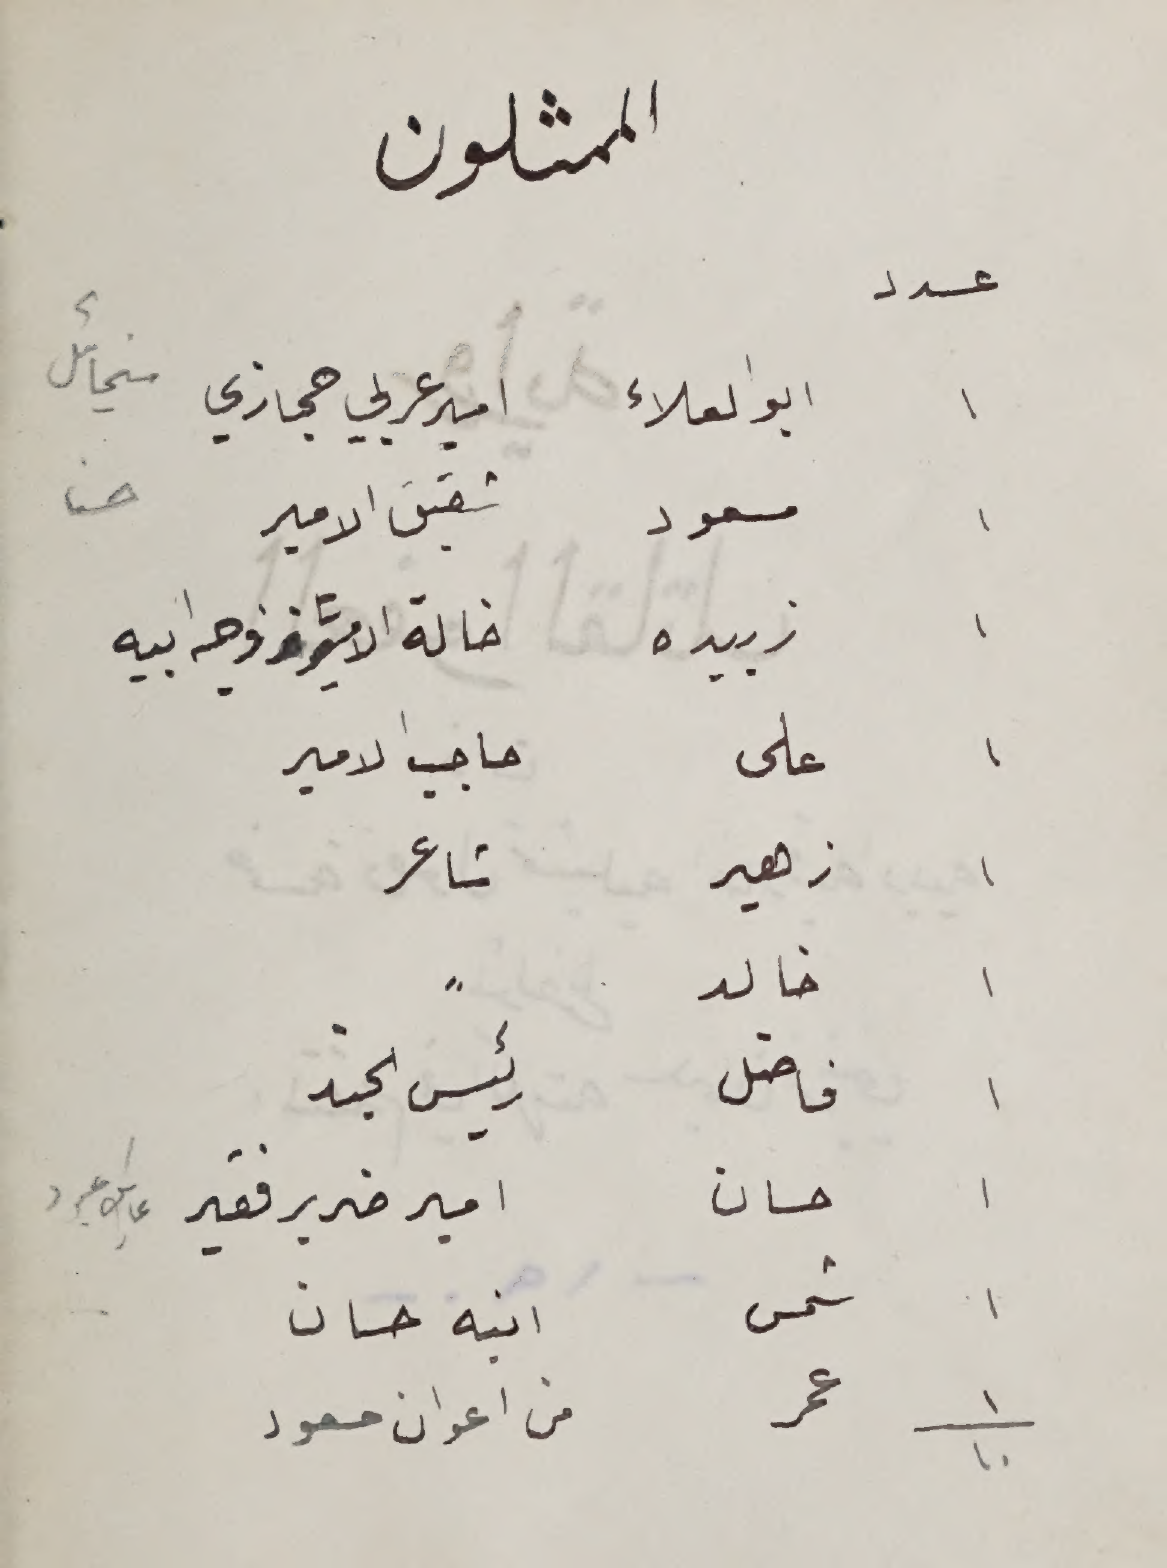 الممثلون
عدد
١ ابو العلاء امير عربي حجازي
١ مسعود شقيق الامير
١ زبيده خالة الامير زوجه ابيه
١ على حاجب الامير
١ زهير شاعر
١ خالد "
١ فاضل رئيس الجند
١ حسان امير ضرير فقير
١ شمس ابنه حسان
١ عمر من اعوان مسعود
١٠